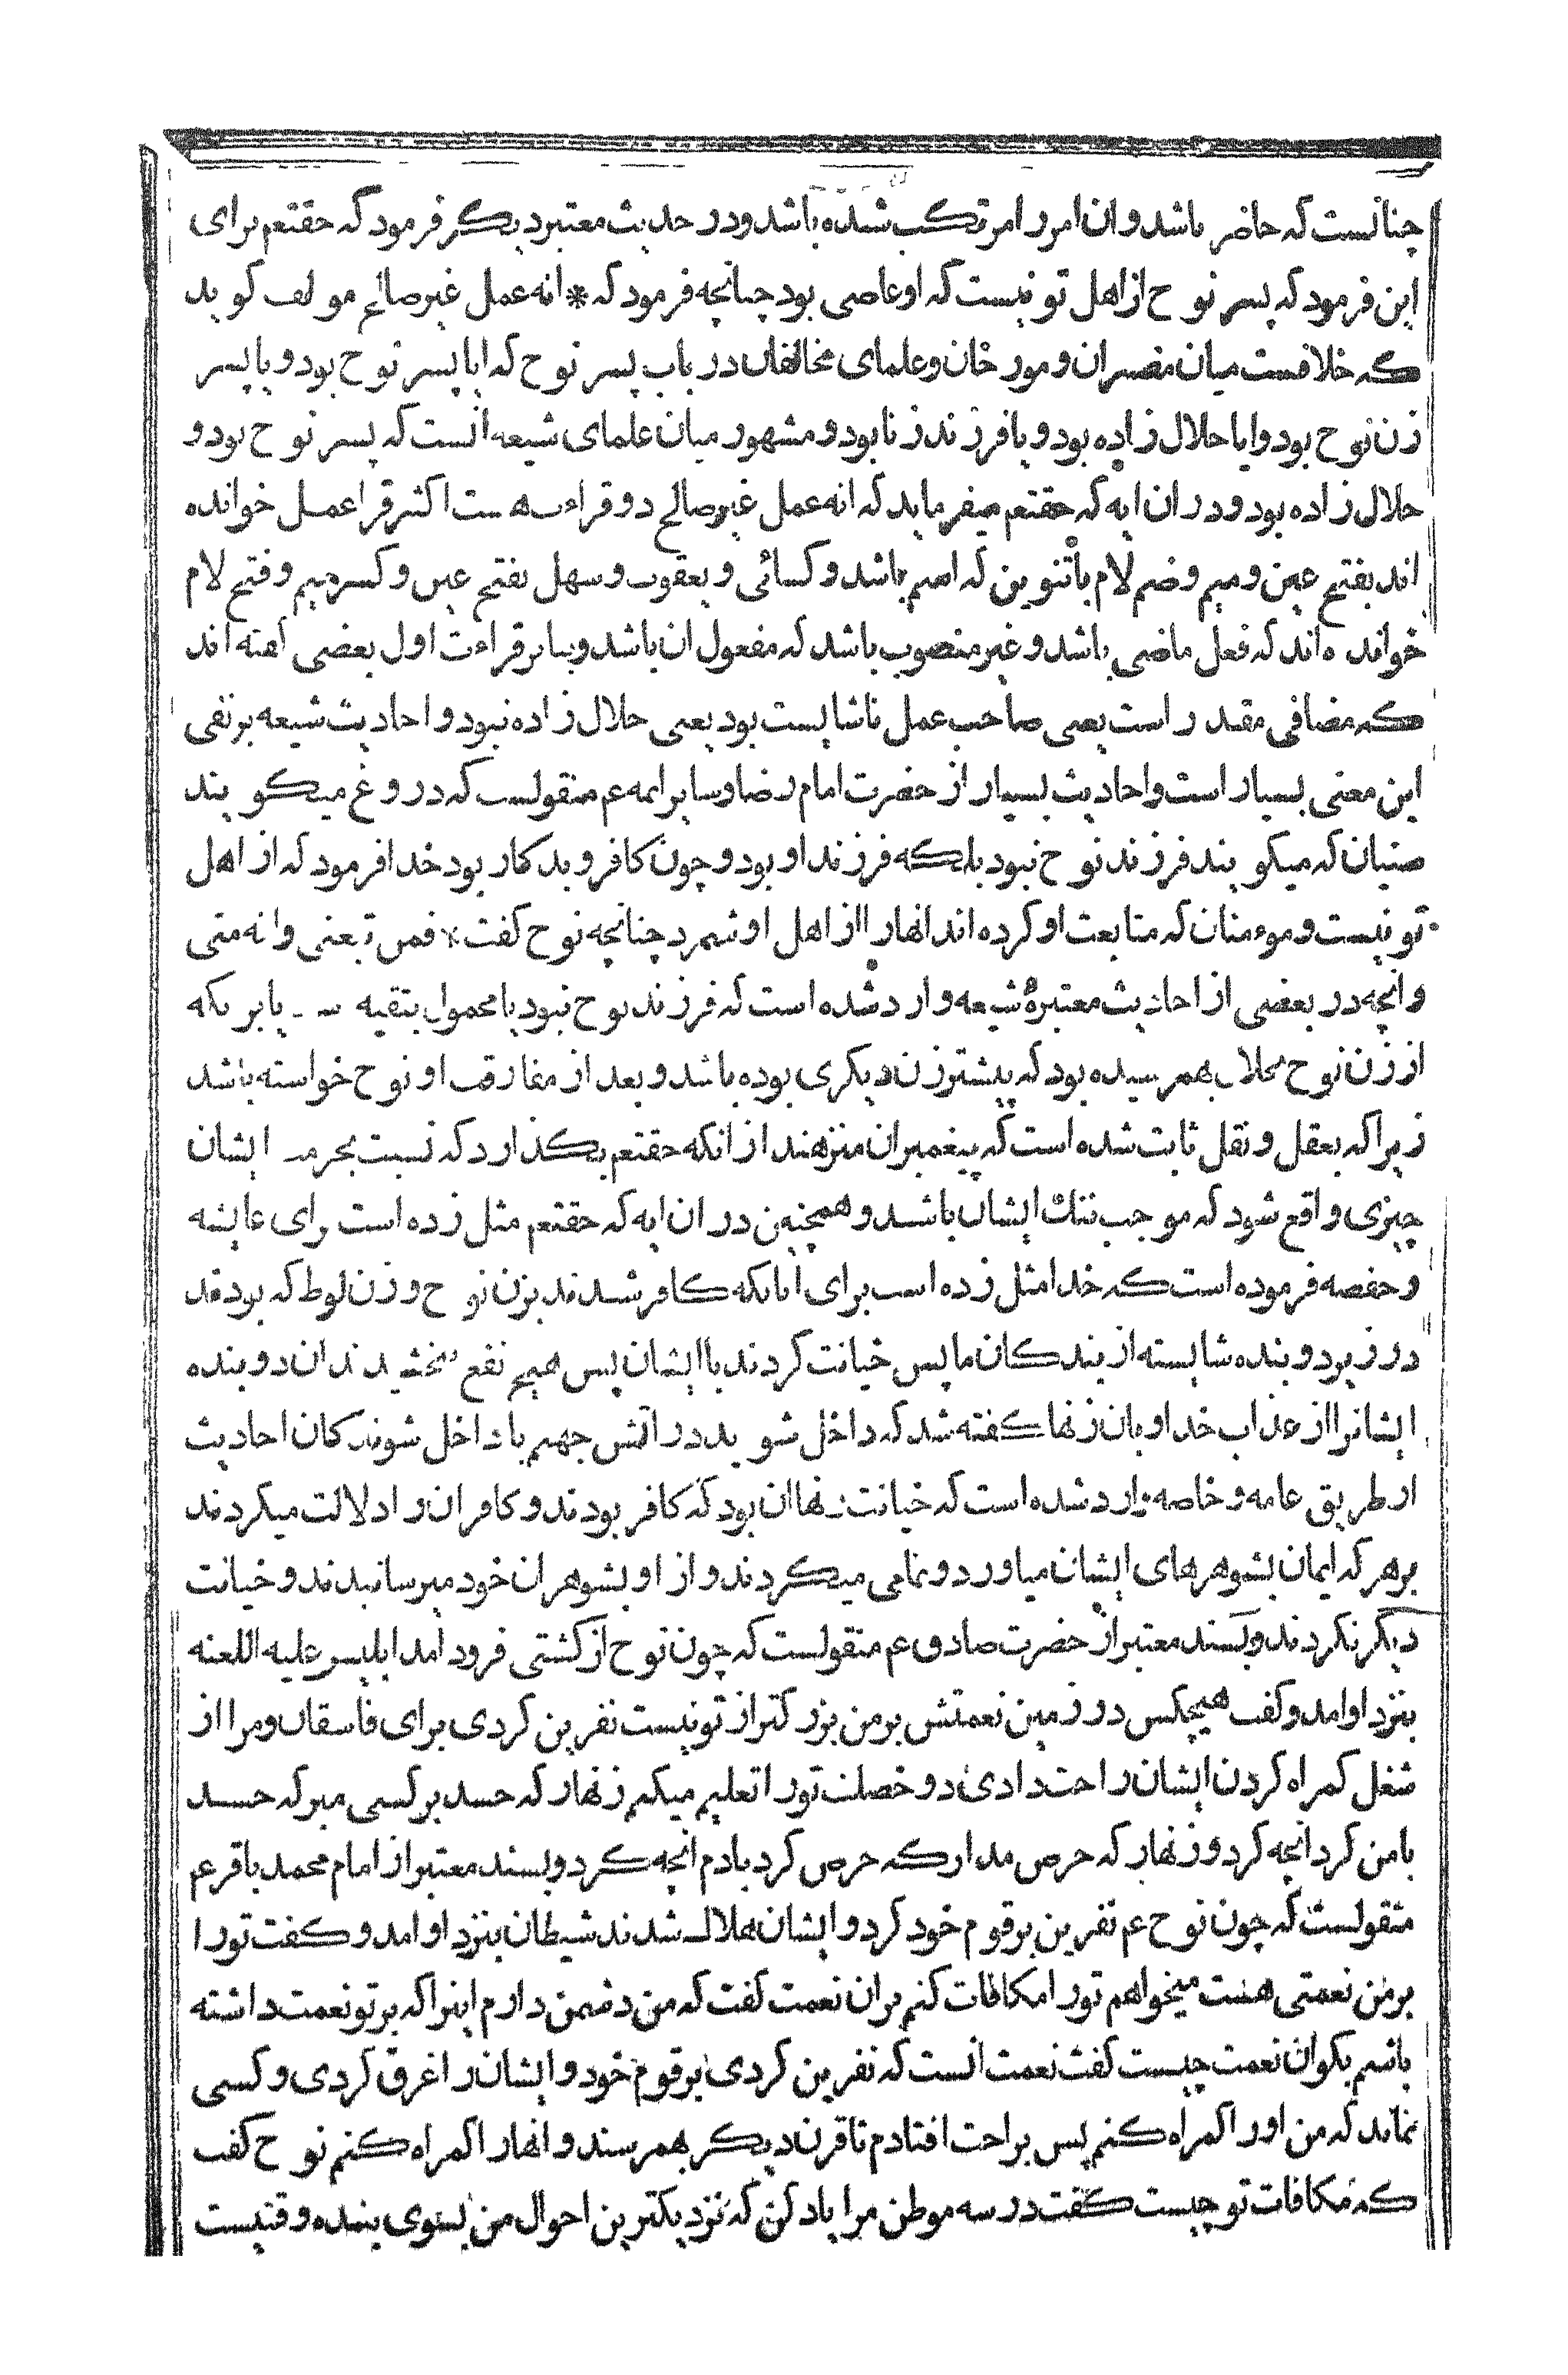 چنانست که حاضر باشد و ان امر را مرتکب شده باشد و در حدیث معتبر دیکر فرمود که حقتعم برای
این فرمود که پسر نوح از اهل تو نیست که او عاصی بود چنانچه فرمود که * انه عمل غیر صالح مولف کوید
که خلافست میان مفسران و مورخان و علمای مخالفان در باب پسر نوح که ایا پسر نوح بود و یا پسر
زن نوح بود و ایا حلال زاده بود و یا فرزند زنا بود و مشهور میان علمای شیعه انست که پسر نوح بود و
حلال زاده بود و در ان ایه که حقتعم میفرماید که انه عمل غیر صالح دو قراءت هست اکثر قرا عمل خوانده
اند بفتح عین و میم و ضم لام با تنوین که اسم باشد و کسائی و یعقوب و سهل بفتح عین و کسر میم و فتح لام
خوانده اند که فعل ماضی باشد و غیر منصوب باشد که مفعول ان باشد و بنابر قراءت اول بعضی کفته اند
که مضافی مقدر است یعنی صاحب عمل ناشایست بود یعنی حلال زاده نبود و احادیث شیعه بر نفی
این معنی بسیار است و احادیث بسیار از حضرت امام رضا و سایر ایمه عم منقولست که دروغ میکویند
سنیان که میکویند فرزند نوح نبود بلکه فرزند او بود و چون کافر و بدکار بود خدا فرمود که از اهل
تو نیست و موءمنان که متابعت او کرده اند انها را از اهل او شمرد چنانچه نوح کفت * فمن تبعنی فانه منی
و انچه در بعضی از احادیث معتبرهٔ شیعه وارد شده است که فرزند نوح نبود یا محمول بتقیه یا بر یکه
از زن نوح بحلال بهمرسیده بود که پیشتر زن دیکری بوده باشد و بعد از مفارقت او نوح خواسته باشد
زیرا که بعقل و نقل ثابت شده است که پیغمبران منزهند از انکه حقتعم بکذارد که نسبت بحرمت ایشان
چیزی واقع شود که موجب ننک ایشان باشد و همچنین در ان ایه که حقتعم مثل زده است برای عایشه
و حفصه فرموده است که خدا مثل زده است برای انانکه کافر شدند بزن نوح و زن لوط که بودند
در زیر دو بنده شایسته از بندکان ما پس خیانت کردند با ایشان پس هیچ نفع نبخشیدند ان دو بنده
ایشانرا از عذاب خدا و بان زنها کفته شد که داخل شوید در آتش جهنم با داخل شوندکان احادیث
از طریق عامه و خاصه وارد شده است که خیانت زنها ان بود که کافر بودند و کافران را دلالت میکردند
بر هر که ایمان بشوهرهای ایشان میاورد و نمامی میکردند و ازار بشوهران خود میرسانیدند و خیانت
دیکر نکردند و بسند معتبر از حضرت صادق عم منقولست که چون نوح از کشتی فرود امد ابلیس علیه اللعنه
بنزد او امد و کفت هیچکس در زمین نعمتش بر من بزرکتر از تو نیست نفرین کردی برای فاسقان و مرا از
شغل کمراه کردن ایشان راحت دادی دو خصلت تو را تعلیم میکنم زنهار که حسد بر کسی مبر که حسد
با من کرد انچه کرد و زنهار که حرص مدار که حرص کرد بادم انچه کرد و بسند معتبر از امام محمد باقر عم
منقولست که چون نوح عم نفرین بر قوم خود کرد و ایشان هلاک شدند شیطان بنزد او امد و کفت تو را
بر من نعمتی هست میخواهم تو را مکافات کنم بر ان نعمت کفت که من دشمن دارم اینرا که بر تو نعمت داشته
باشم بکو ان نعمت چیست کفت نعمت انست که نفرین کردی بر قوم خود و ایشان را غرق کردی و کسی
نماند که من او را کمراه کنم پس براحت افتادم تا قرن دیکر بهمرسند و انها را کمراه کنم نوح کفت
که مکافات تو چیست کفت در سه موطن مرا یاد کن که نزدیکترین احوال من بسوی بنده وقتیست